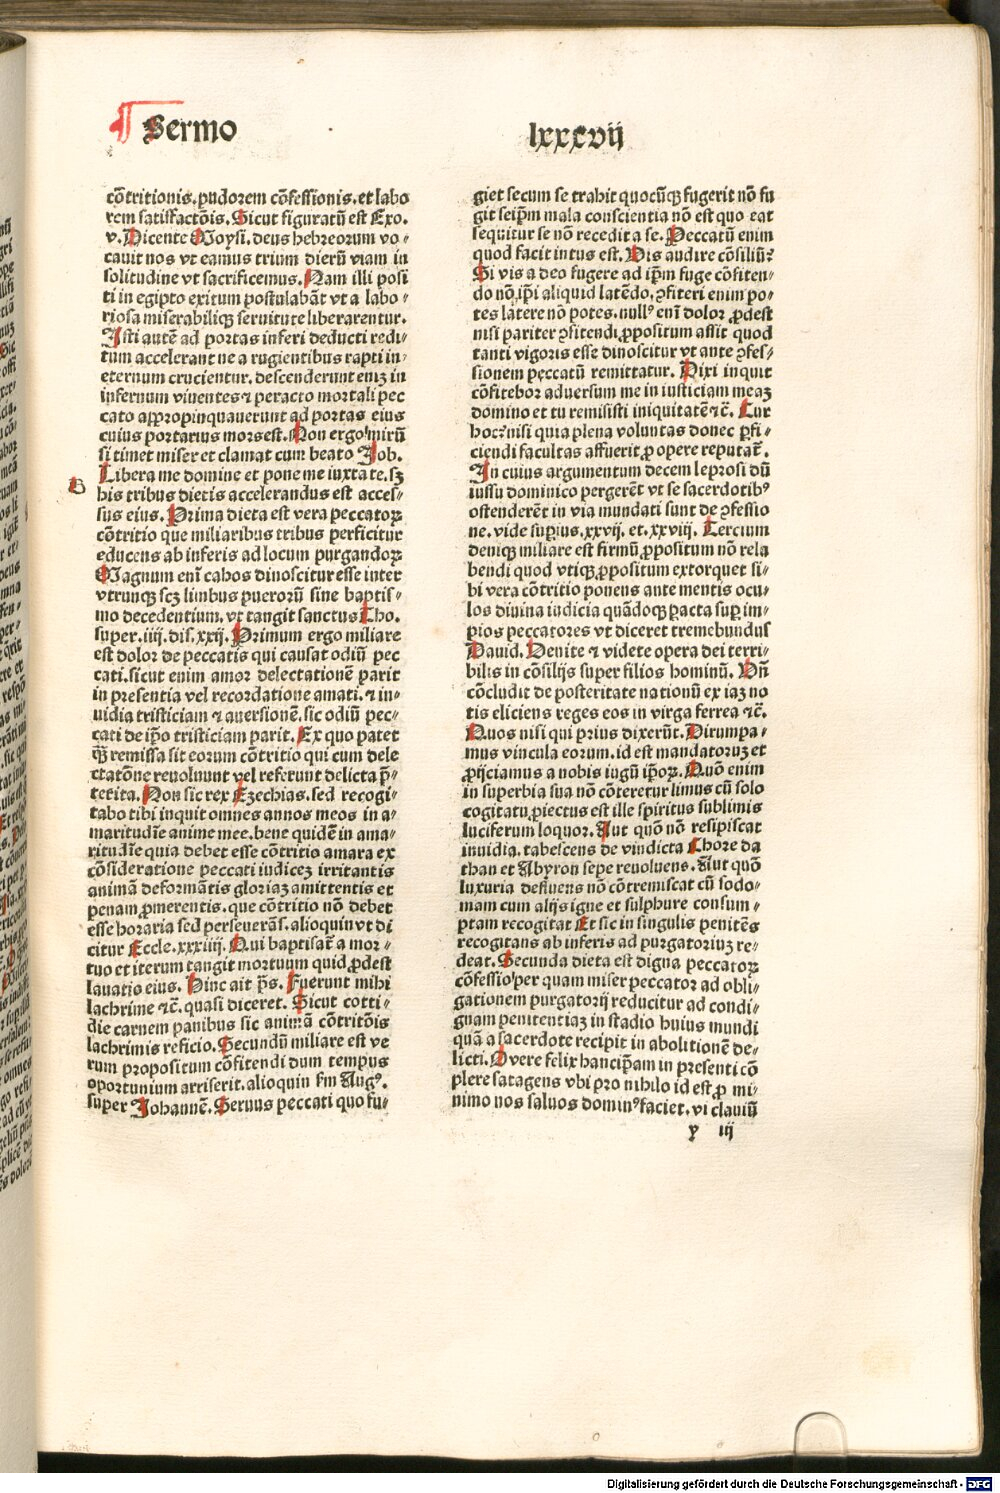 Sermo
lxxxvij
cōtritionis. pudorem cōfessionis. et labo
rem satisfactōis. Sicut figuratū est Exo.
v. Dicente Moysi. deus hebreorum vo⸗
cauit nos vt eamus trium dierū viam in
solitudine vt sacrificemus. Nam illi posi
ti in egipto exitum postulabāt vt a labo⸗
riosa miserabiliqꝫ seruitute liberarentur.
Isti autē ad portas inferi deducti redi⸗
tum accelerant ne a rugientibus rapti in⸗
eternum crucientur. descenderunt eniꝫ in
infernum viuentes ⁊ peracto mortali pec
cato appropinquauerunt ad portas eius
cuius portarius mors est. Non ergo mirū
si timet miser et clamat cum beato Job.
Libera me domine et pone me iuxta te. sꝫ
B
his tribus dietis accelerandus est acces⸗
sus eius. Prima dieta est vera peccatoꝝ
cōtritio que miliaribus tribus perficitur
educens ab inferis ad locum purgandoꝝ
Magnum enī cahos dinoscitur esse inter
vtrunqꝫ scꝫ limbus puerorū sine baptis⸗
mo decedentium. vt tangit sanctus Tho.
super. iiij. dis. xxij. Primum ergo miliare
est dolor de peccatis qui causat odiū pec
cati. sicut enim amor delectationē parit
in presentia vel recordatione amati. ⁊ in⸗
uidia tristiciam ⁊ auersionē. sic odiū pec⸗
cati de ip̄o tristiciam parit. Ex quo patet
qꝫ̄ remissa sit eorum cōtritio qui cum dele
ctatōne reuoluunt vel referunt delicta p̄⸗
terita. Non sic rex Ezechias. sed recogi⸗
tabo tibi inquit omnes annos meos in a⸗
maritudīe anime mee. bene quidē in ama⸗
ritudīe quia debet esse cōtritio amara ex
cōsideratione peccati iudiceꝫ irritantis
animā deformātis gloriaꝫ amittentis et
penam ꝓmerentis. que cōtritio nō debet
esse horaria sed perseuerās. alioquin vt di
citur Eccle. xxxiiij. Qui baptisat̄ a mor⸗
tuo et iterum tangit mortuum quid ꝓdest
lauatio eius. Hinc ait ps̄. Fuerunt mihi
lachrime ⁊c̄. quasi diceret. Sicut cotti⸗
die carnem panibus sic animā cōtritōis
lachrimis reficio. Secundū miliare est ve
rum propositum cōfitendi dum tempus
oportunium arriserit. alioquin ẜm Augꝰ.
super Johannē. Seruus peccati quo fu⸗
giet secum se trahit quocūqꝫ fugerit nō fu
git seip̄m mala conscientia nō est quo eat
sequitur se non recedit a se. Peccatū enim
quod facit intus est. Vis audire cōsiliū?
Si vis a deo fugere ad ip̄m fuge cōfiten⸗
do nō ip̄i aliquid latēdo. ꝯfiteri enim po⸗
tes latere nō potes. nullꝰ enī dolor ꝓdest
nisi pariter ꝯfitendi ꝓpositum assit quod
tanti vigoris esse dinoscitur vt ante ꝯfes⸗
sionem peccatū remittatur. Dixi inquit
cōfitebor aduersum me in iusticiam meaꝫ
domino et tu remisisti iniquitatē ⁊c̄. Cur
hoc? nisi quia plena voluntas donec ꝑfi⸗
ciendi facultas affuerit ꝓ opere reputat̄.
In cuius argumentum decem leprosi dū
iussu dominico pergerēt vt se sacerdotibꝰ
ostenderēt in via mundati sunt de ꝯfessio
ne. vide supius. xxvij. et. xxviij. Tercium
deniqꝫ miliare est firmū ꝓpositum nō rela
bendi quod vtiqꝫ ꝓpositum extorquet si⸗
bi vera cōtritio ponens ante mentis ocu⸗
los diuina iudicia quādoqꝫ ꝑacta suꝑ im⸗
pios peccatores vt diceret tremebundus
Dauid. Venite ⁊ videte opera dei terri⸗
bilis in cōsilijs super filios hominū. Vn̄
cōcludit de posteritate nationū ex iaꝫ no
tis eliciens reges eos in virga ferrea ⁊c̄.
Quos nisi qui prius dixerūt. Dirumpa⸗
mus vincula eorum. id est mandatoruꝫ et
ꝓijciamus a nobis iugū ip̄oꝝ. Quō enim
in superbia sua nō cōteretur limus cū solo
cogitatu ꝓiectus est ille spiritus sublimis
luciferum loquor. Aut quō nō resipiscat
inuidia. tabescens de vindicta Chore da
than et Abyron sepe reuoluens. Aut quō
luxuria defluens nō cōtremiscat cū sodo⸗
mam cum alijs igne et sulphure consum⸗
ptam recogitat Et sic in singulis penitēs
recogitans ab inferis ad purgatoriuꝫ re⸗
deat. Secunda dieta est digna peccatoꝝ
cōfessio per quam miser peccator ad obli⸗
gationem purgatorij reducitur ad condi⸗
gnam penitentiaꝫ in stadio huius mundi
quā a sacerdote recipit in abolitionē de⸗
licti. O vere felix hanc ip̄am in presenti cō
plere satagens vbi pro nihilo id est ꝓ mi⸗
nimo nos saluos dominꝰ faciet. vi clauiū
y iij
Digitalisierung gefördert durch die Deutsche Forschungsgemeinschaft - DFG